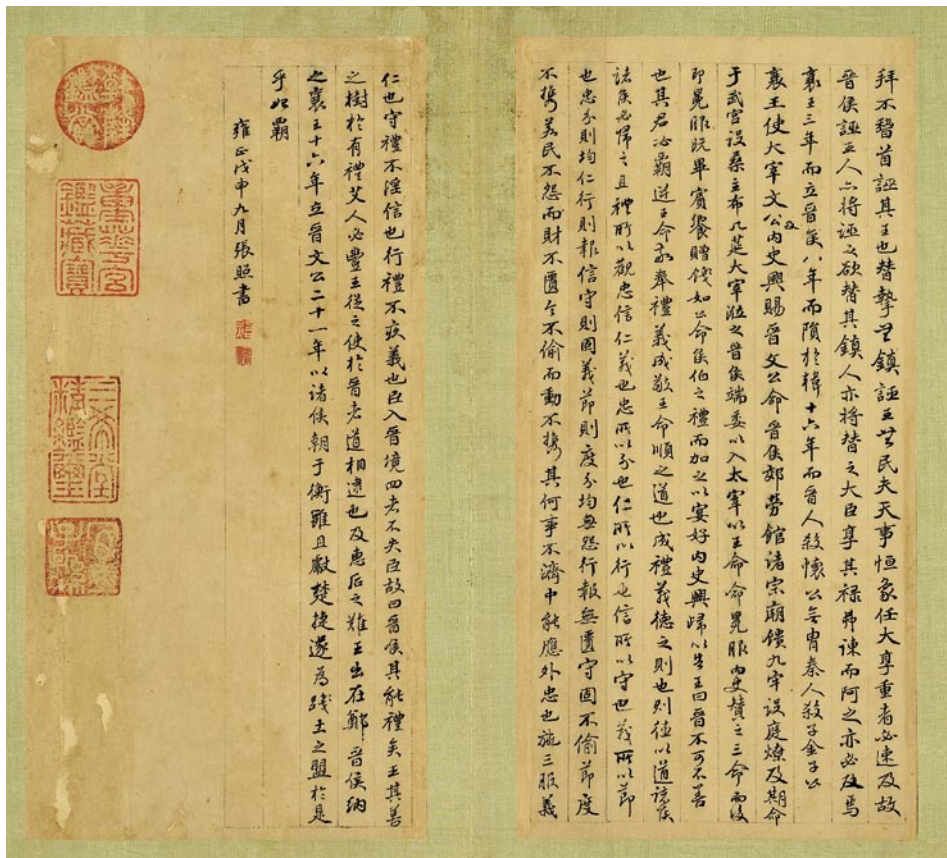 拜不稽首誣其王也替摯無鎮誣王無民夫天事恒象任大享重者必速及故
晉侯誣王人亦將誣之欲替其鎮人亦將替之大臣享其祿弗諫而阿之亦必及焉
襄王三年而立晉侯八年而隕於韓十六年而晉人殺懷公無胄秦人殺子金子公
襄王使大宰文公及內史興賜晉文公命晉侯郊勞館諸宗廟饋九牢設庭燎及期命
于武宮設桑主布几筵大宰涖之晉侯端委以入太宰以王命命冕服內史贊之三命而後
即冕服既畢賓饗贈餞如公命侯伯之禮而加之以宴好內史興歸以告王曰晉不可不善
也其君必霸逆王命敬奉禮義成敬王命順之道也成禮義德之則也則德以道諸侯
諸侯必歸之且禮所以觀忠信仁義也忠所以分也仁所以行也信所以守也義所以節
也忠分則均仁行則報信守則固義節則度分均無怨行報無匱守固不偷節度
不攜若民不怨而財不匱令不偷而動不攜其何事不濟中能應外忠也施三服義
仁也守禮不淫信也行禮不疚義也臣入晉境四者不失臣故曰晉侯其能禮矣王其善
之樹於有禮艾人必豐王從之使於晉者道相逮也及惠后之難王出在鄭晉侯納
之襄王十六年立晉文公二十一年以諸侯朝于衡雝且獻楚捷遂為踐土之盟於是
乎始霸
雍正戊申九月張照書
乾隆鑑賞
重華宮鑑藏寶
三希堂精鑑璽
宜子孫